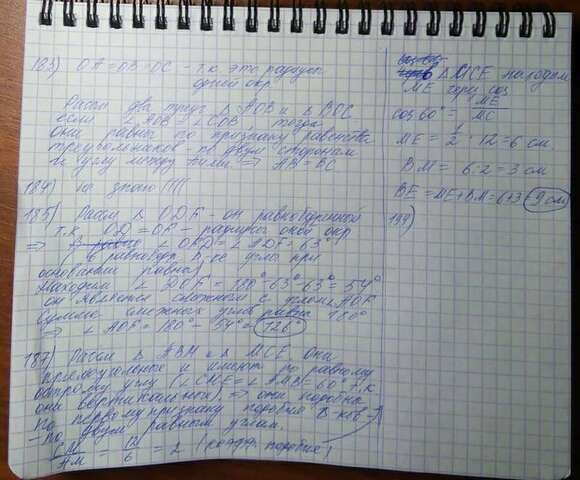 183) OA = OB = OC - т.к. это радиусы
одной окр.
Рассм два треуг. Δ AOB и Δ BOC
если ∠AOB = ∠COB тогда
они равны по признаку равенства
треугольников по двум сторонам
и углу между ними ⇒ AB = BC
184) не знаю ((((
185) Рассм Δ ODF - он равнобедренный
т.к. OD = OF - радиусы одной окр
⇒ ∠OFD = ∠ADF = 63°
в равнобед. Δ-ке углы при
основании равны
Находим ∠DOF = 180° - 63° - 63° = 54°
он является смежным с углом AOF
Сумма смежных углов равна 180°
⇒ ∠AOF = 180° - 54° = 126°
187) Рассм Δ ABM и Δ MCE они
прямоугольные и имеют по равному
острому углу (∠CME = ∠AMB = 60° т.к
они вертикальные) ⇒ они подобны
по первому признаку подобия Δ-ков
- по двум равным углам.
CM/AM = 12/6 = 2 (коэфф. подобия)
Δ MCE находим
ME через cos
cos 60° = ME/MC
ME = 1/2 · 12 = 6 см
BM = 6:2 = 3 см
BE = ME + BM = 6+3 9 см